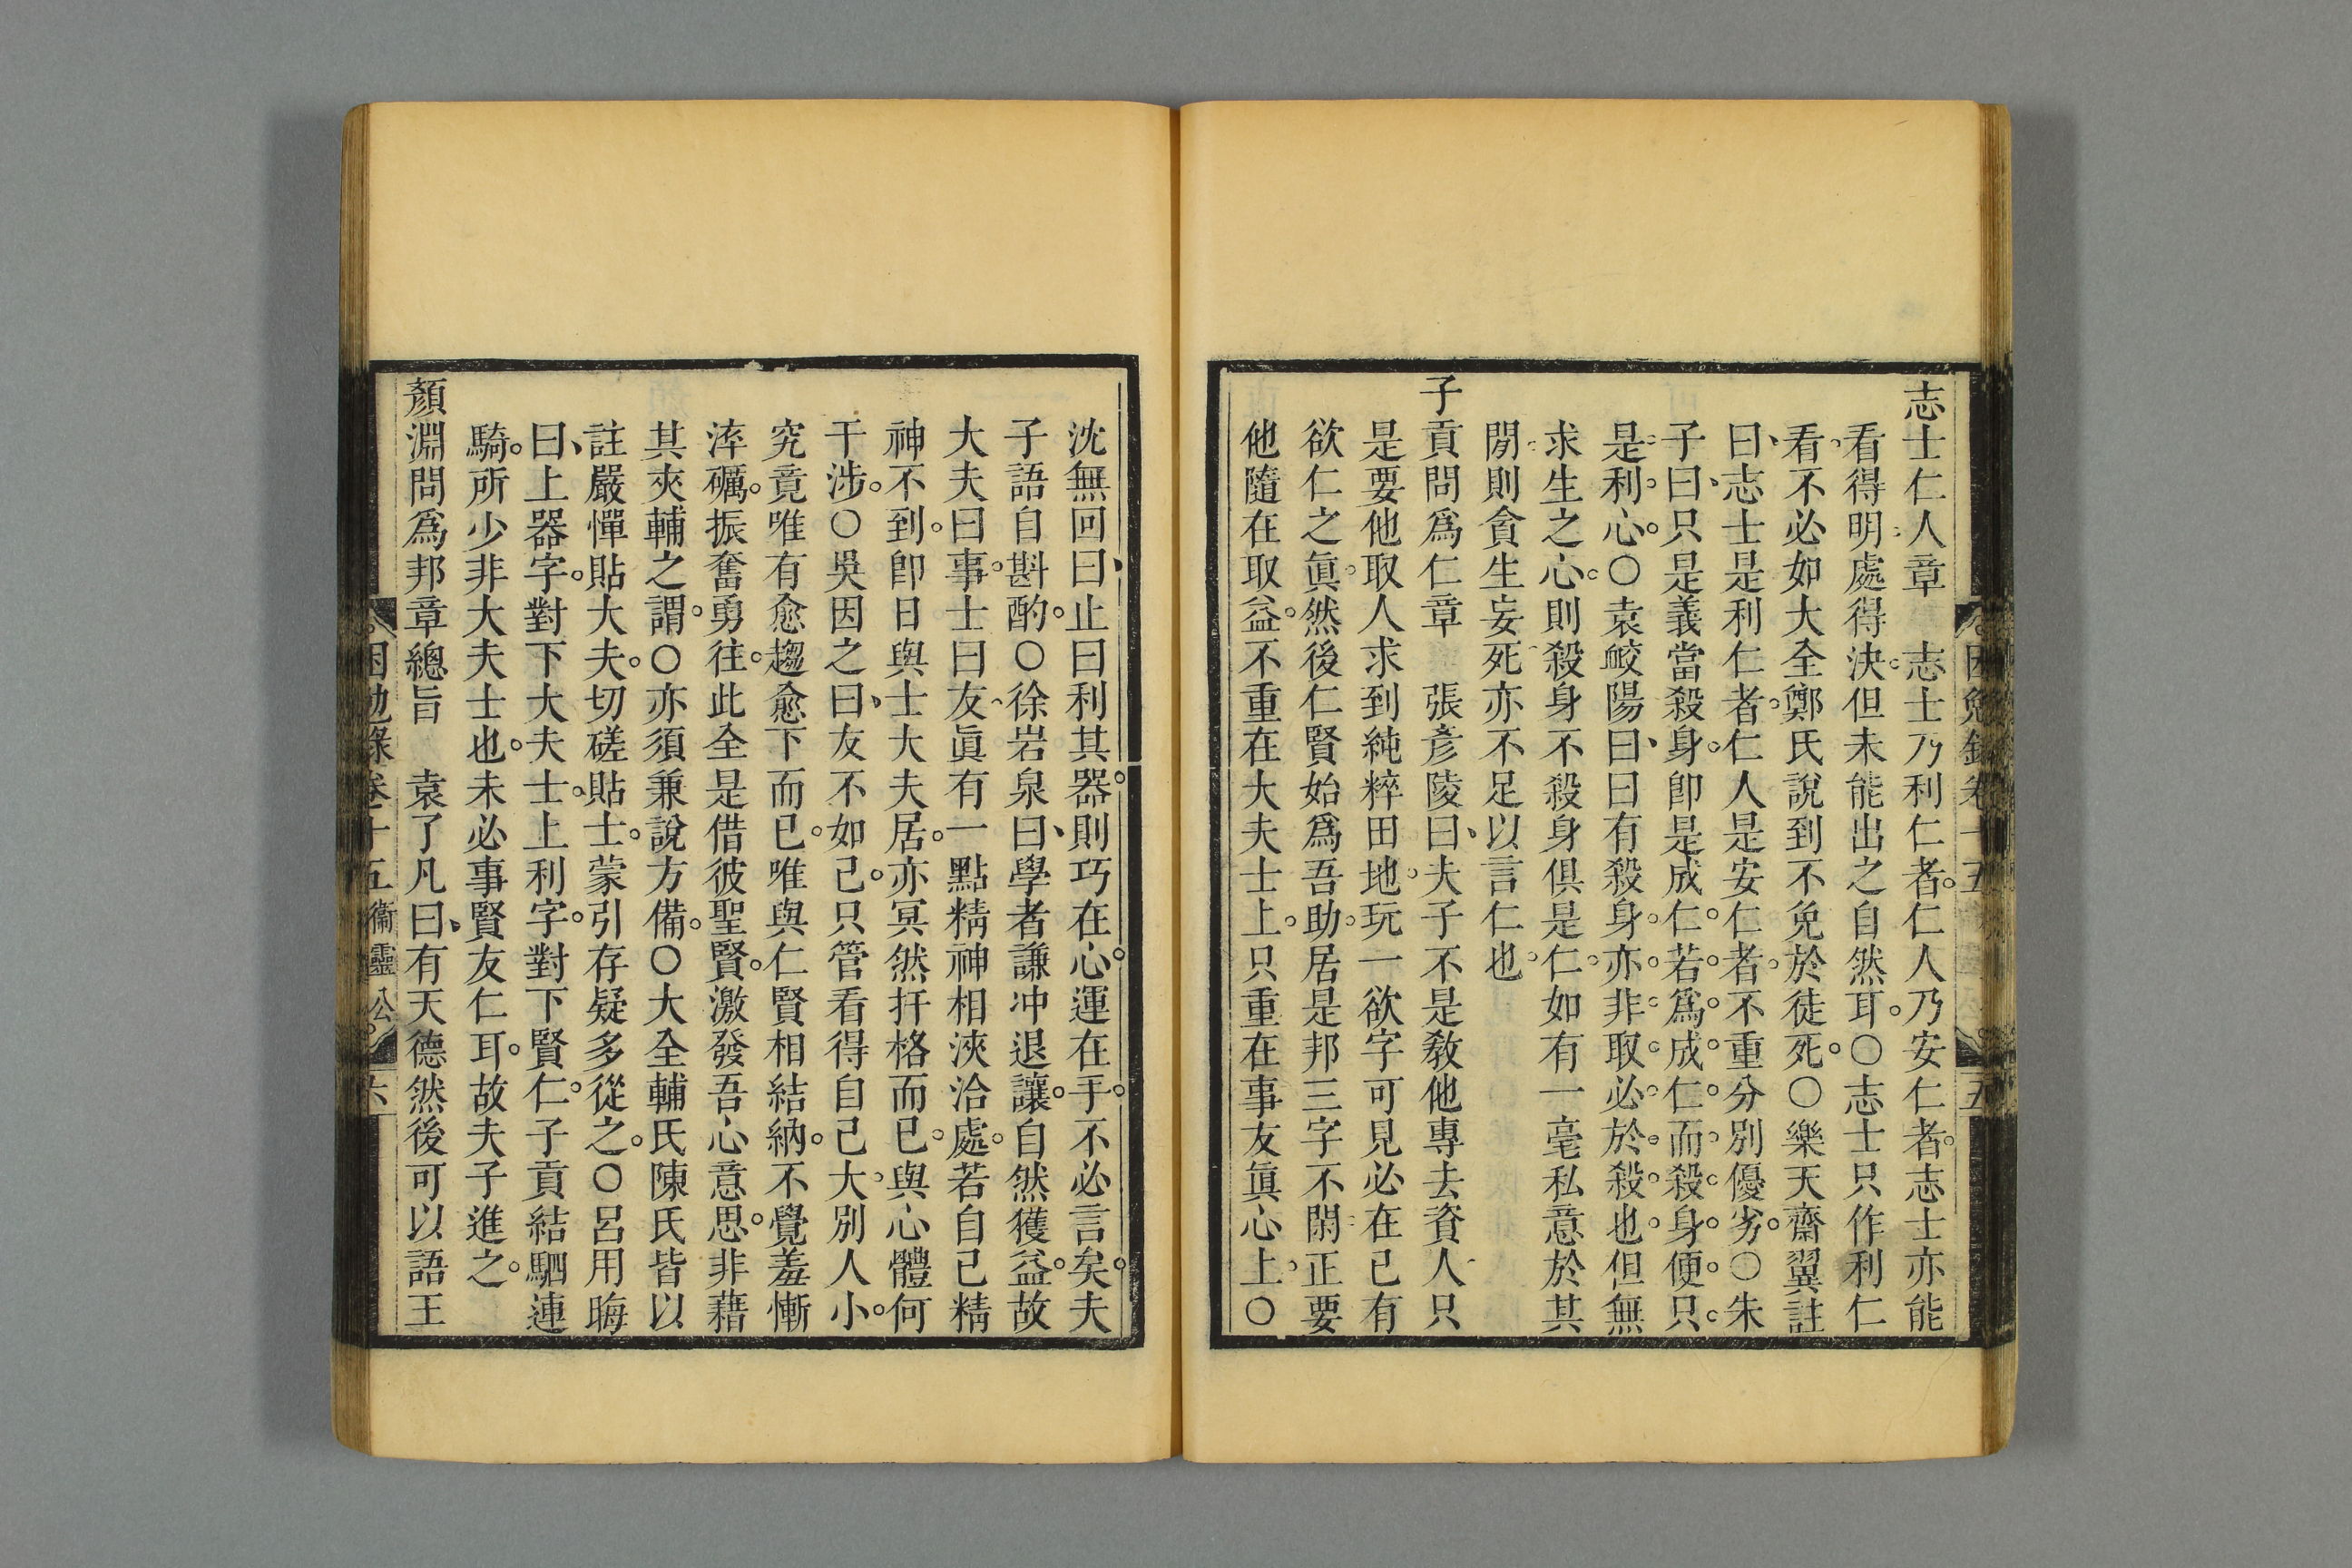 困勉錄卷十五
五
志士仁人章　志士乃利仁者。仁人乃安仁者。志士亦能
看得明處得決但未能出之自然耳。〇志士只作利仁
看不必如大全鄭氏說到不免於徒死。〇樂天齋翼註
曰、志士是利仁者。仁人是安仁者。不重分別優劣。〇朱
子曰、只是義當殺身。卽是成仁。若爲成仁而殺身便只
是利心。〇袁㟲陽曰、曰有殺身亦非取必於殺也但無
求生之心則殺身不殺身俱是仁如有一毫私意於其
閒則貪生妄死亦不足以言仁也
子貢問爲仁章　張彥陵曰、夫子不是敎他專去資人只
是要他取人求到純粹田地玩一欲字可見必在己有
欲仁之眞然後仁賢始爲吾助。居是邦三字不閒正要
他隨在取益。不重在大夫士上。只重在事友眞心上〇
沈無回曰、止曰利其器。則巧在心。運在手。不必言矣。夫
子語自斟酌。〇徐岩泉曰、學者謙冲退讓。自然獲益。故
大夫曰事。士曰友眞有一點精神相浹洽處。若自己精
神不到。卽日與士大夫居。亦冥然扞格而已。與心體何
干涉。〇吳因之曰、友不如己。只管看得自己大別人小。
究竟唯有愈趨愈下而已。唯與仁賢相結納。不覺羞慚
淬礪。振奮勇往。此全是借彼聖賢。激發吾心意思。非藉
其夾輔之謂。〇亦須兼說方備。〇大全輔氏陳氏皆以
註嚴憚貼大夫。切磋貼士。蒙引存疑多從之。〇呂用晦
曰、上器字。對下大夫士。上利字。對下賢仁。子貢結駟連
騎。所少非大夫士也。未必事賢友仁耳。故夫子進之。
顏淵問爲邦章總旨　袁了凡曰、有天德然後可以語王
困勉錄卷十五 衞靈公
六